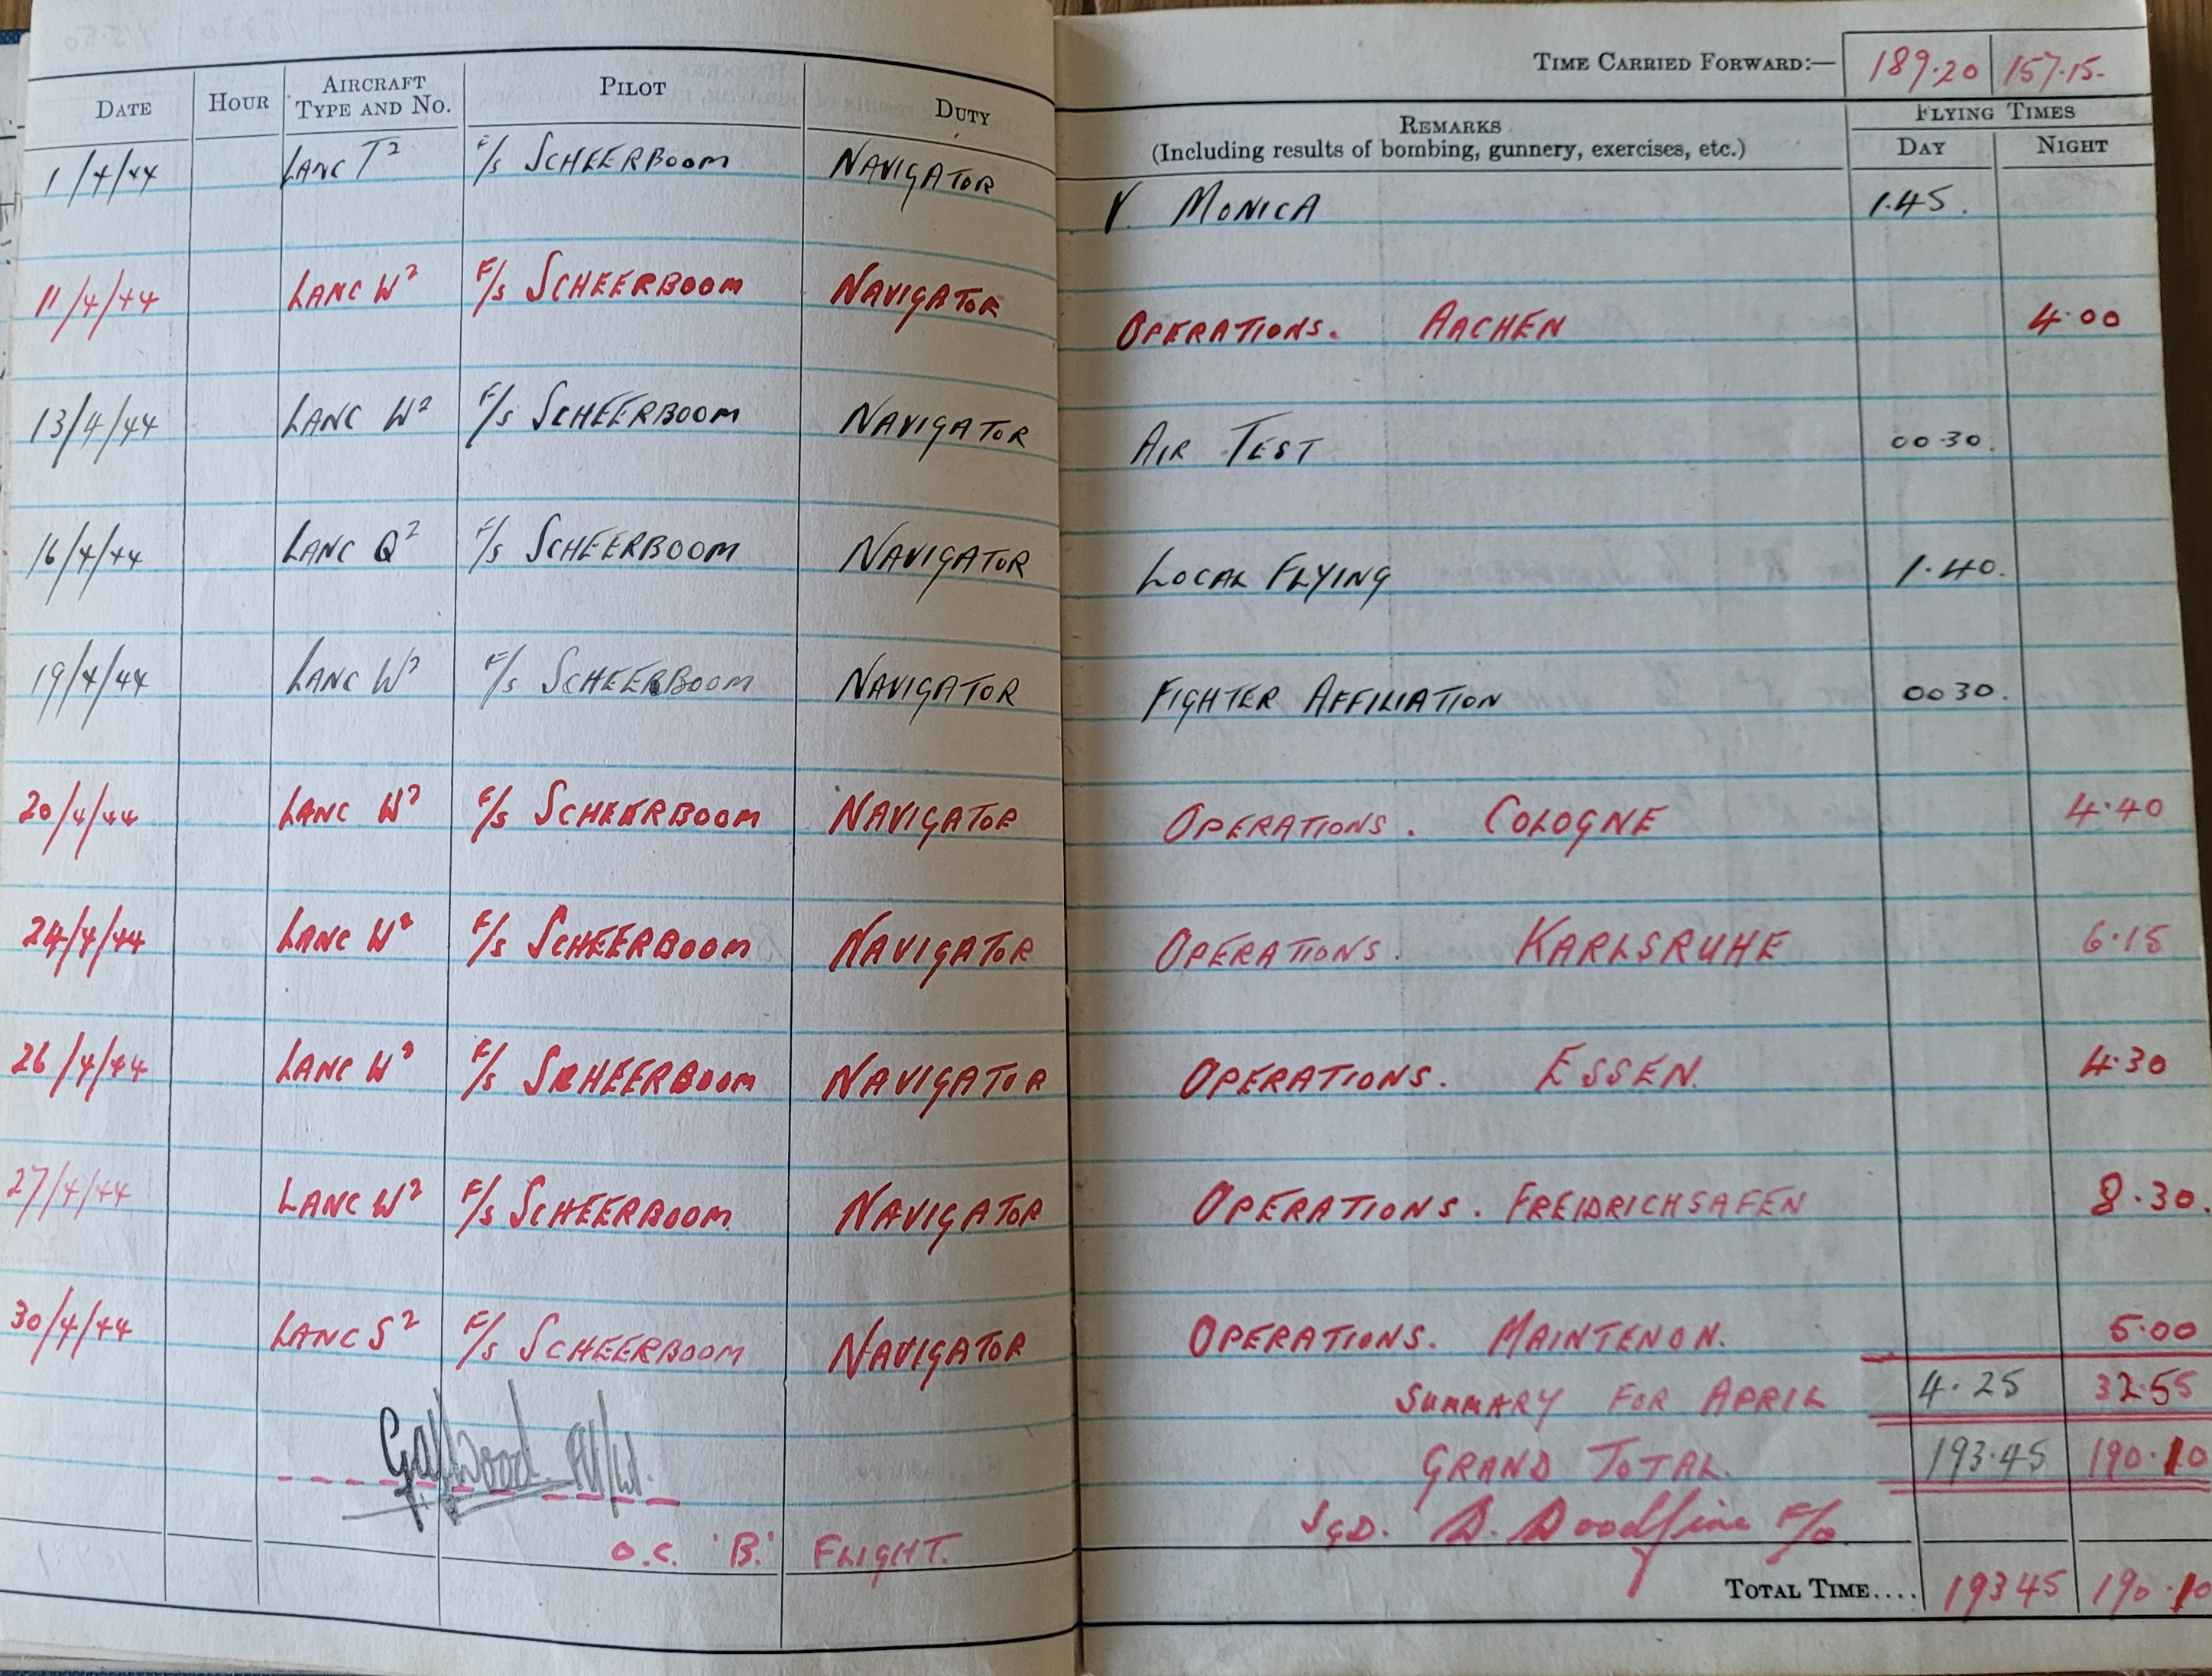 TIME CARRIED FORWARD:— 189.20 157.15-
DATE HOUR AIRCRAFT TYPE AND NO. PILOT DUTY REMARKS (Including results of bombing, gunnery, exercises, etc.) FLYING TIMES DAY NIGHT
1/4/44 LANC T² F/S SCHEERBOOM NAVIGATOR Y. MONICA 1.45.
11/4/44 LANC W² F/S SCHEERBOOM NAVIGATOR OPERATIONS. AACHEN 4.00
13/4/44 LANC W² F/S SCHEERBOOM NAVIGATOR AIR TEST 00.30.
16/4/44 LANC Q² F/S SCHEERBOOM NAVIGATOR LOCAL FLYING 1.40.
19/4/44 LANC W² F/S SCHEERBOOM NAVIGATOR FIGHTER AFFILIATION 0030.
20/4/44 LANC W² F/S SCHEERBOOM NAVIGATOR OPERATIONS. COLOGNE 4.40
24/4/44 LANC W² F/S SCHEERBOOM NAVIGATOR OPERATIONS. KARLSRUHE 6.15
26/4/44 LANC W² F/S SCHEERBOOM NAVIGATOR OPERATIONS. ESSEN. 4.30
27/4/44 LANC W² F/S SCHEERBOOM NAVIGATOR OPERATIONS. FREIDRICHSAFEN 8.30.
30/4/44 LANC S² F/S SCHEERBOOM NAVIGATOR OPERATIONS. MAINTENON. 5.00
SUMMARY FOR APRIL 4.25 32.55
GRAND TOTAL. 193.45 190.10
SGD. D. Doodfine F/O
O.C. 'B.' FLIGHT.
TOTAL TIME.... 19345 190.10